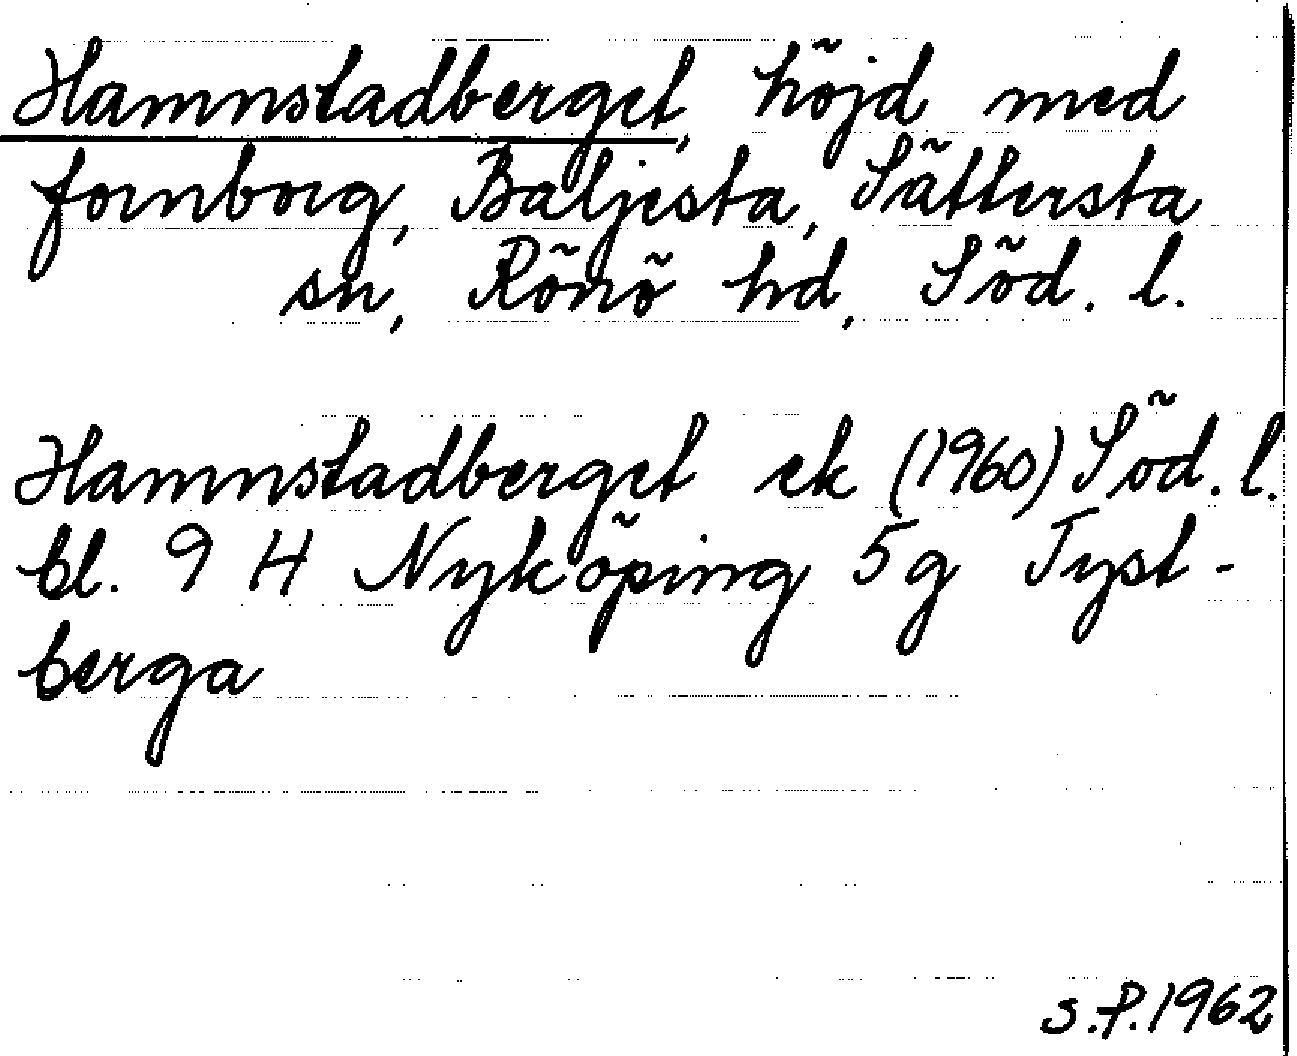 Hamnstadberget, höjd med
fornborg, Baljesta, Sättersta
sn, Rönö hd, Söd. l.
Hamnstadberget ek (1960) Söd. l.
bl. 9 H Nyköping 5 g Tyst-
berga
S.P. 1962